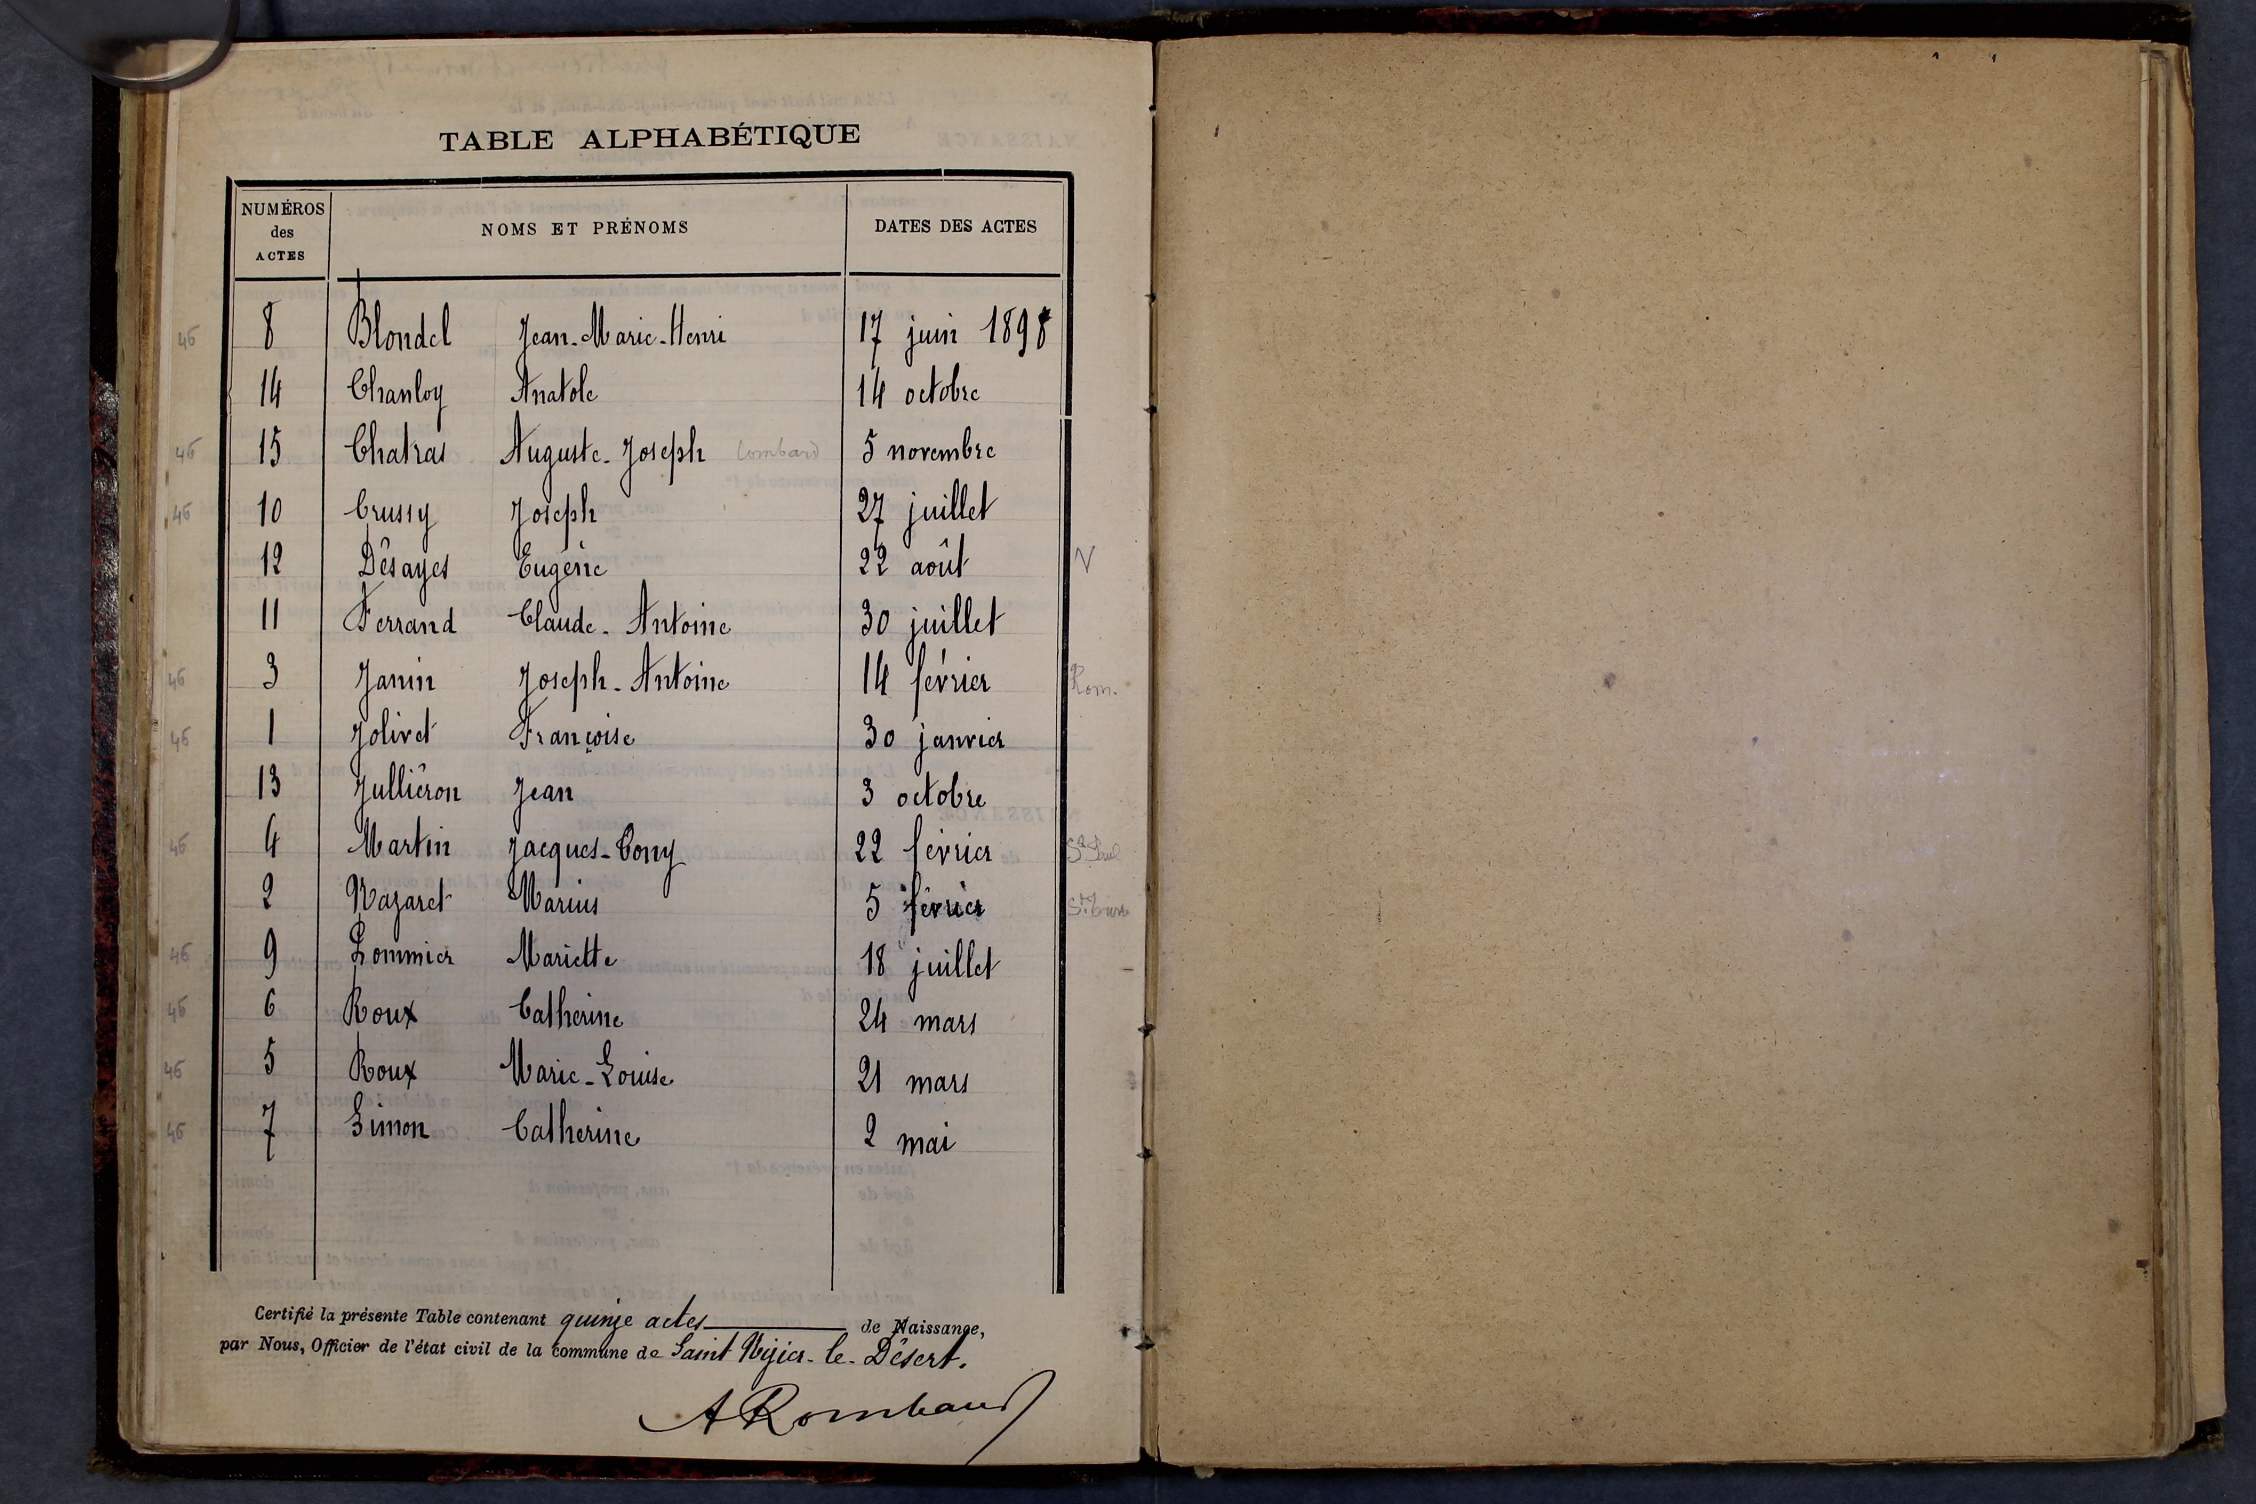 TABLE ALPHABÉTIQUE
NUMÉROS des ACTES NOMS ET PRÉNOMS DATES DES ACTES
46 8 Blondel Jean-Marie-Henri 17 juin 1898
14 Chanloy Anatole 14 octobre
46 15 Chatras Auguste-Joseph Lombard 5 novembre
46 10 Crussy Joseph 27 juillet
12 Désayes Eugénie 22 août V
11 Ferrand Claude-Antoine 30 juillet
46 3 Janin Joseph-Antoine 14 février Rom.
46 1 Jolivet Françoise 30 janvier
13 Julliéron Jean 3 octobre
46 4 Martin Jacques-Tony 22 février
2 Nazaret Marius 5 février
46 9 Pommier Mariette 18 juillet
46 6 Roux Catherine 24 mars
46 5 Roux Marie-Louise 21 mars
46 7 Simon Catherine 2 mai
Certifié la présente Table contenant quinze actes de Naissance,
par Nous, Officier de l'état civil de la commune de Saint Nizier-le-Désert.
ARombaud